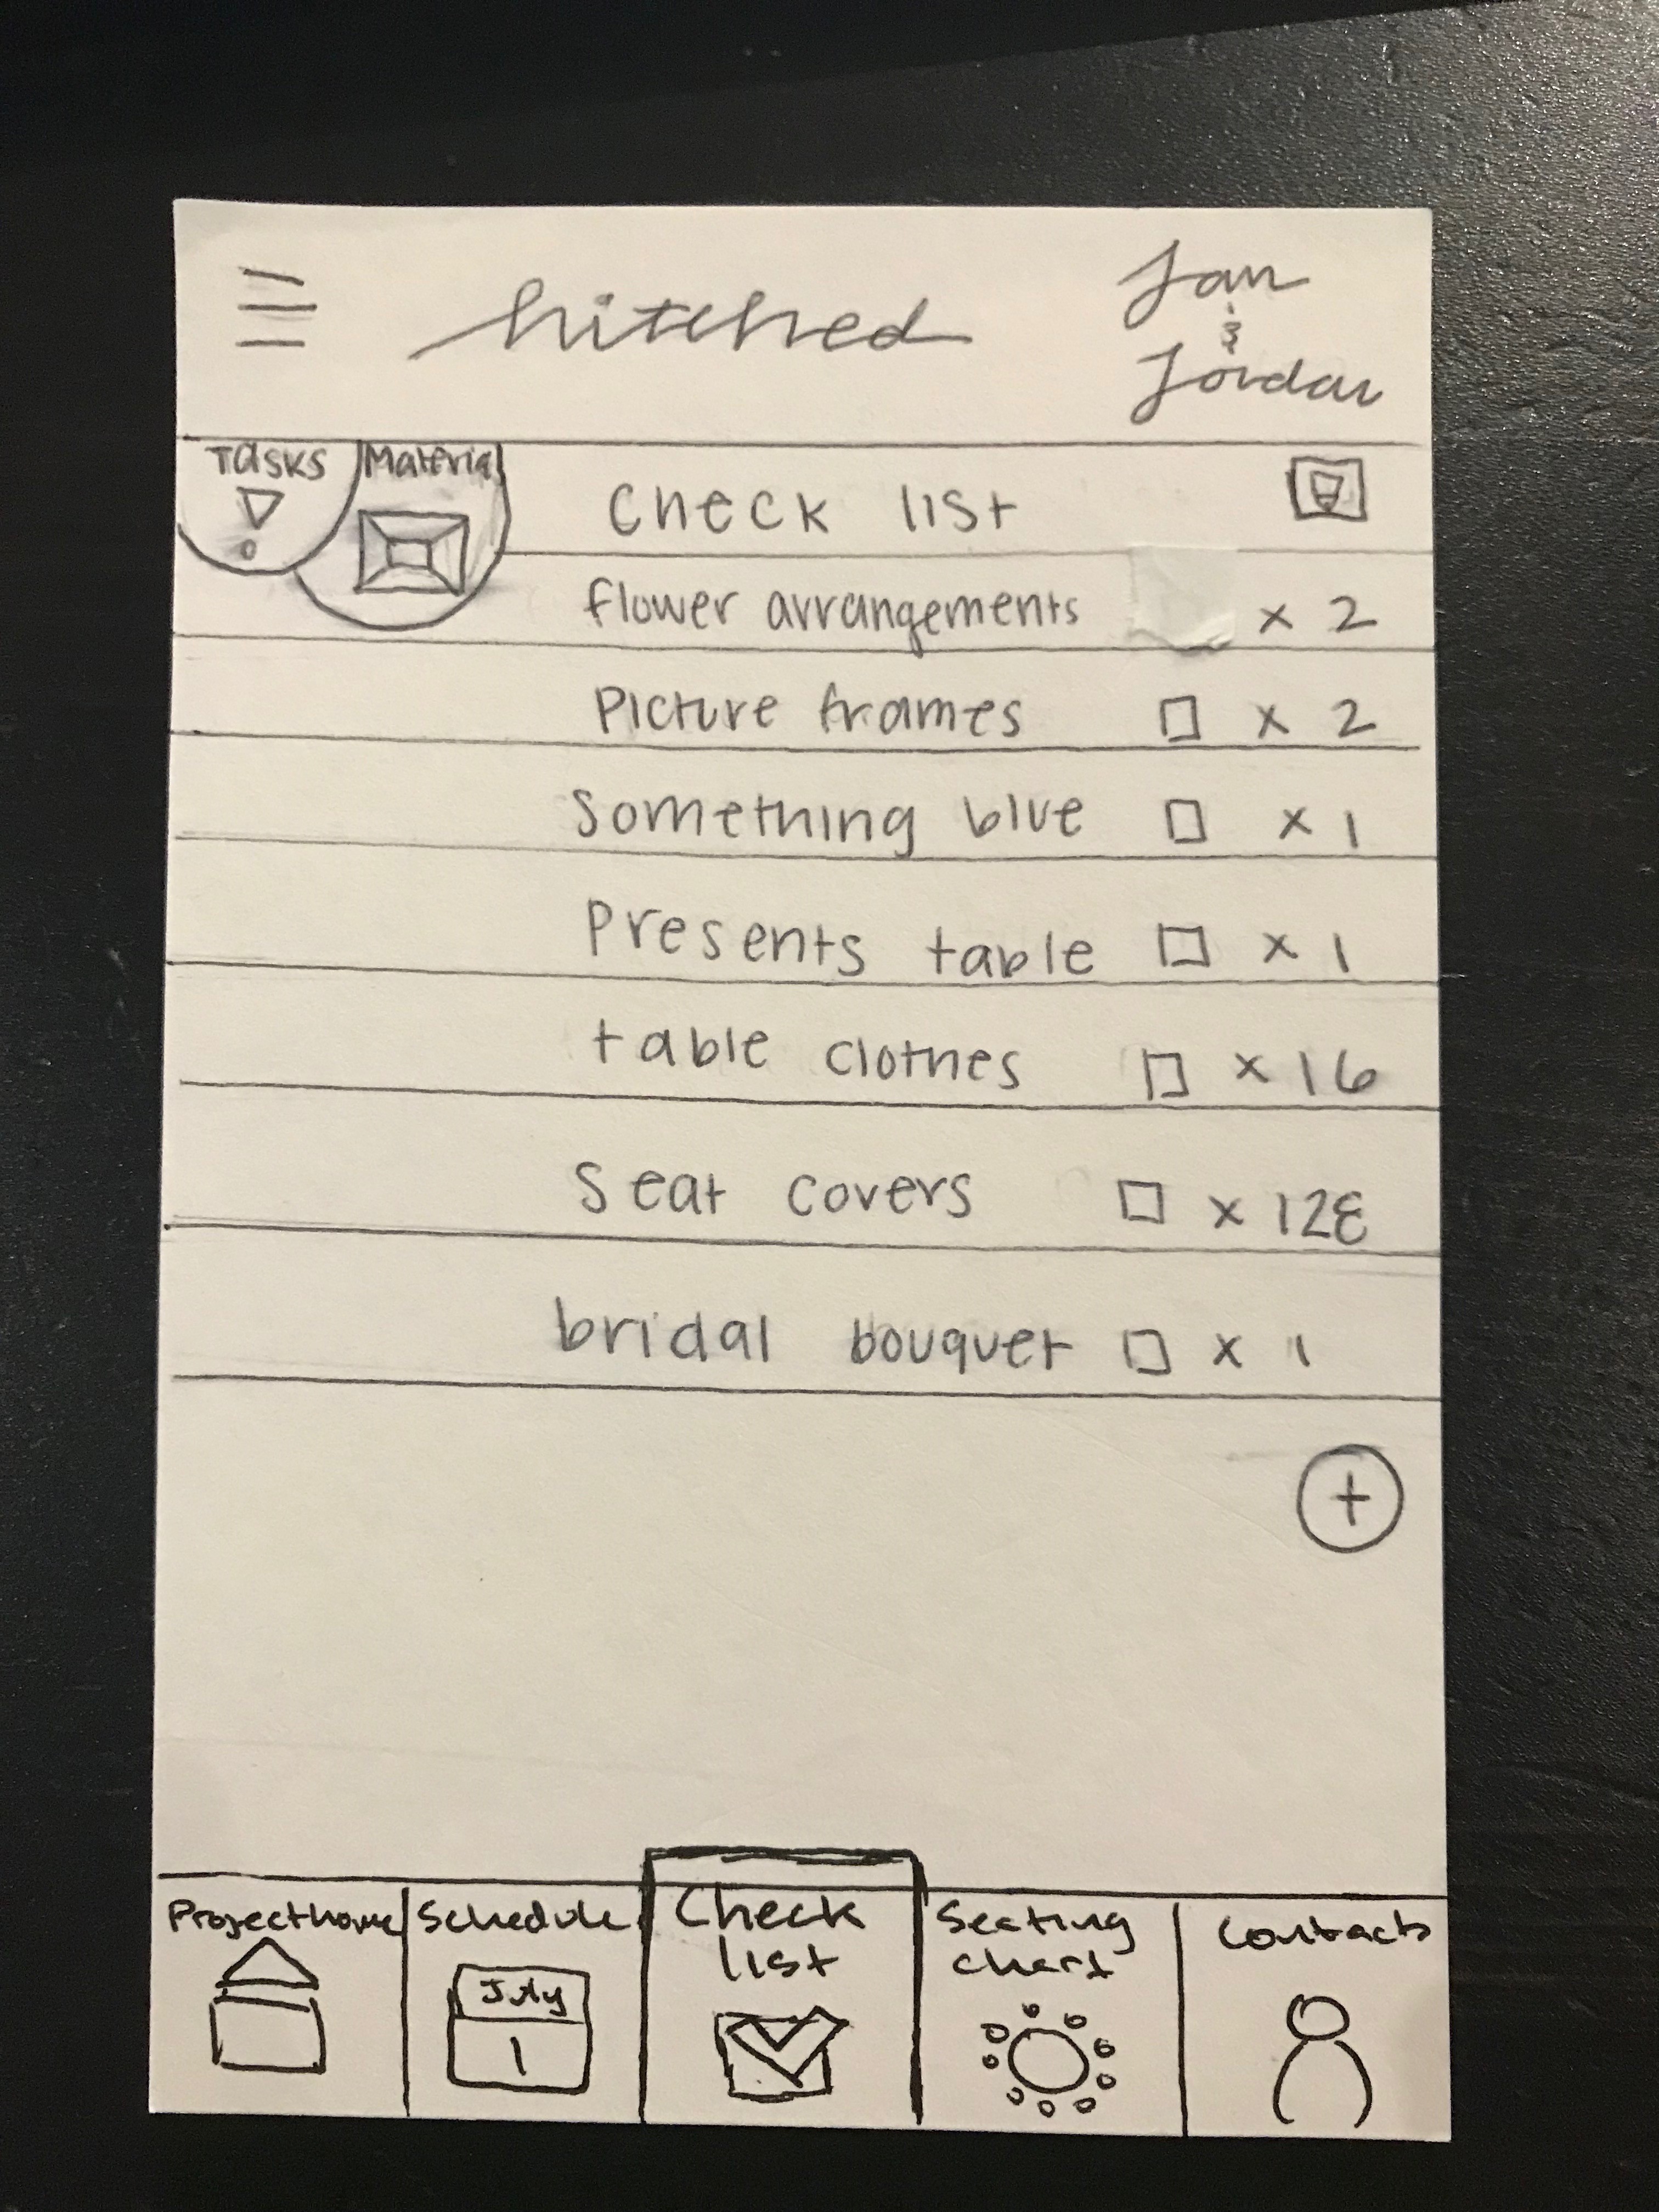 hitched
Jan
&
Jordan
Tasks
Material
Check list
flower arrangements x 2
Picture frames x 2
Something blue x 1
Presents table x 1
table clothes x 16
Seat covers x 128
bridal bouquet x 1
+
Project home
Schedule
July
1
Check
list
Seating
chart
Contacts